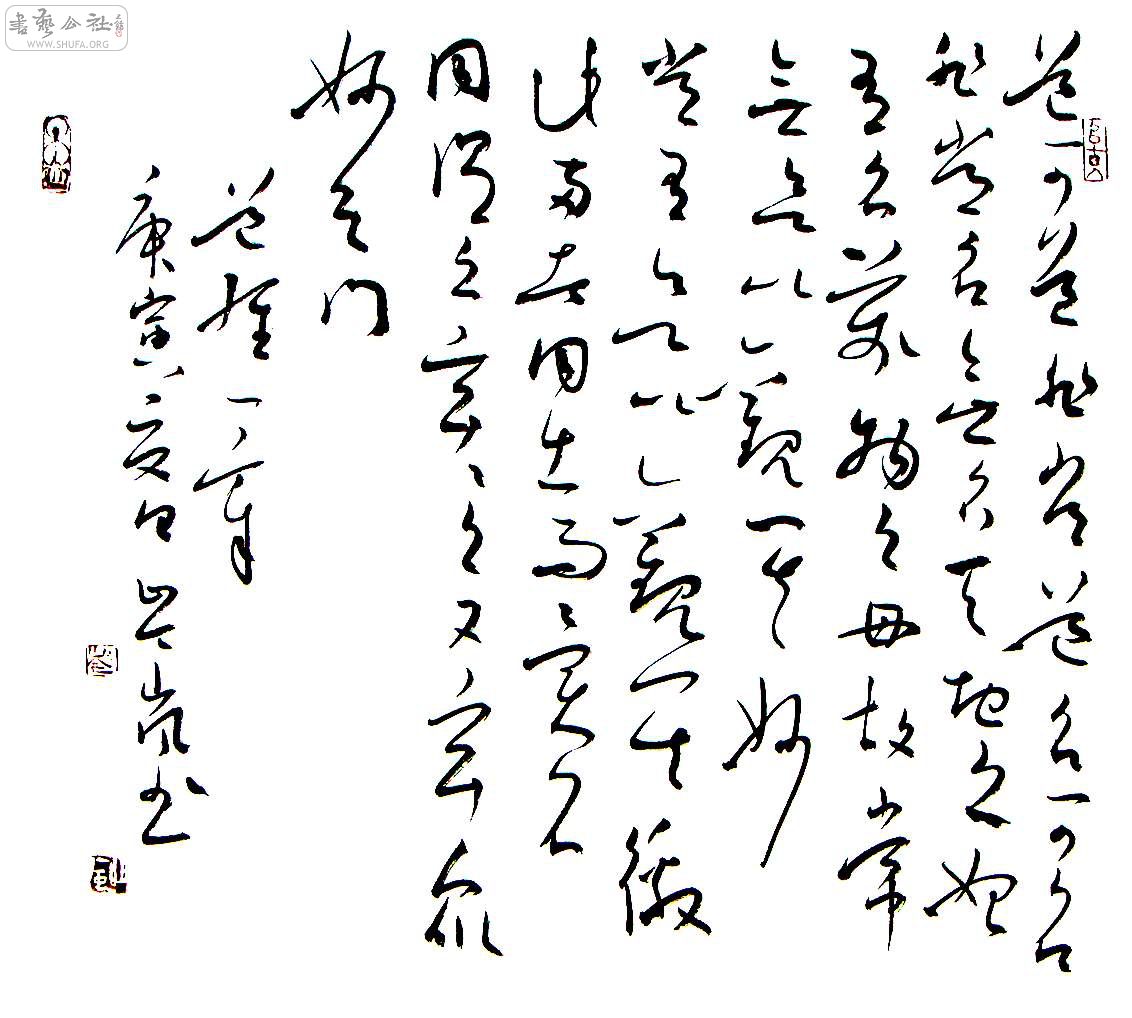 書藝公社
WWW.SHUFA.ORG
道可道非常道名可名
非常名無名天地之始
有名萬物之母故常
無欲以觀其妙
常有欲以觀其徼
此兩者同出而異名
同謂之玄々之又玄眾
妙之門
道經一章
庚寅夏日嵐书